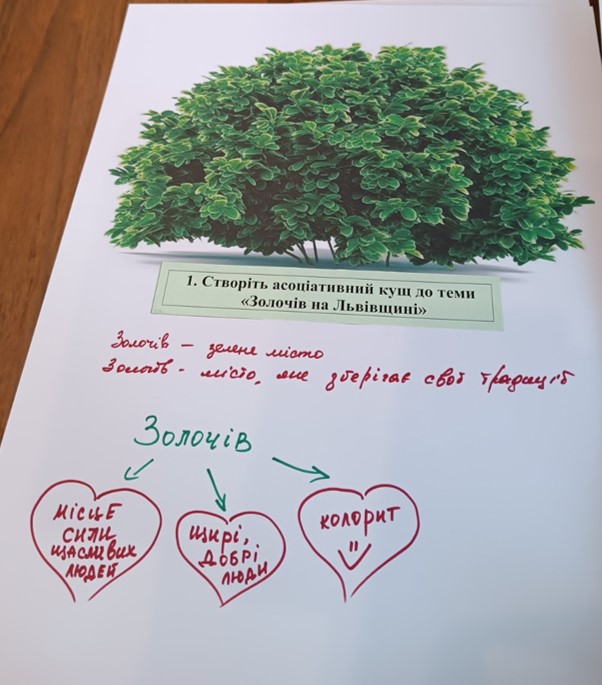 1. Створіть асоціативний кущ до теми
«Золочів на Львівщині»
Золочів – зелене місто
Золочів - місто, яке зберігає свої традиції
Золочів
МІСЦЕ
СИЛИ
ЩАСЛИВИХ
ЛЮДЕЙ
ЩИРІ,
ДОБРІ
ЛЮДИ
КОЛОРИТ